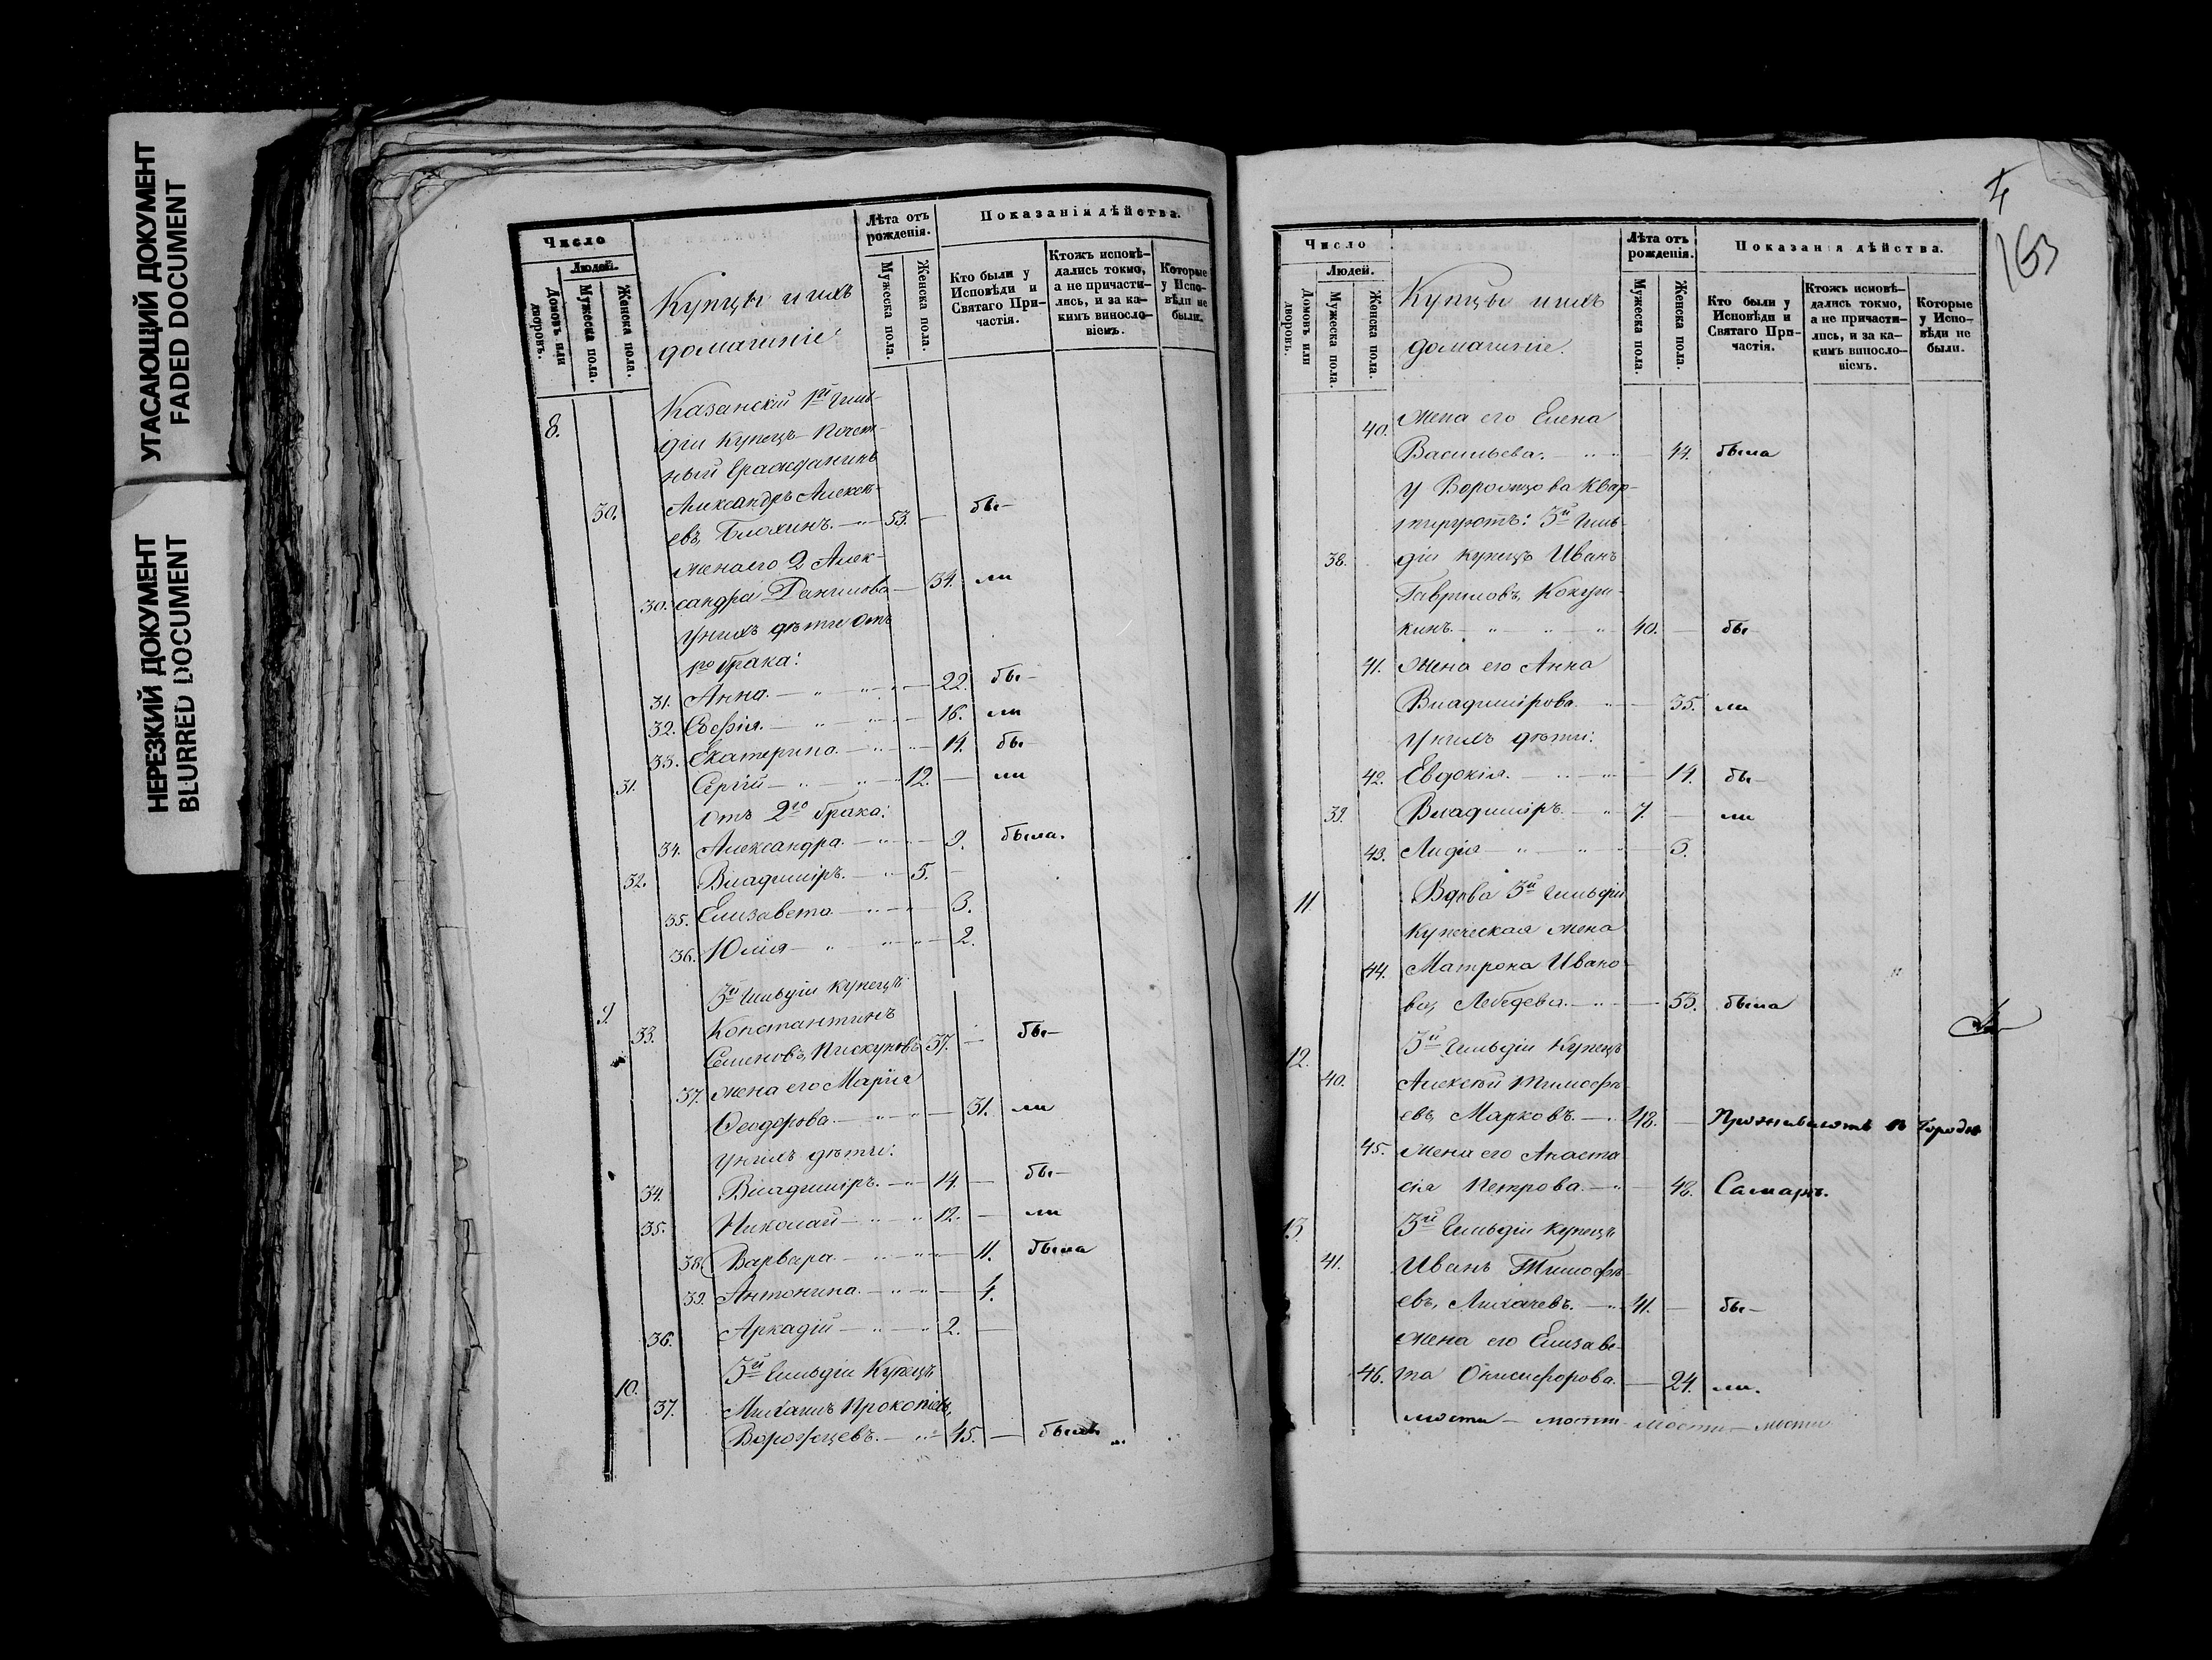 УГАСАЮЩИЙ ДОКУМЕНТ
FADED DOCUMENT
НЕРЕЗКИЙ ДОКУМЕНТ
BLURRED DOCUMENT
Число
Людей.
Домовъ или дворовъ.
Мужеска пола.
Женска пола.
Купцы и ихъ
домашніе
Лѣта отъ рожденія.
Мужеска пола.
Женска пола.
Показанія дѣйства.
Кто были у Исповѣди и Святаго Причастія.
Ктожъ исповѣдались токмо, а не причастились, и за какимъ винословіемъ.
Которые у Исповѣди не были.
8. Казанскій 1й Гиль-
діи Купецъ Почет-
ный Гражданинъ
30. Александръ Алексѣ-
евъ, Блохинъ. 53. — бы-
жена его 2 Алек-
30. сандра Данилова — 34. ли
У нихъ дѣти отъ
1го брака:
31. Анна. — 22. бы-
32. Софія. — 16. ли
33. Екатерина. — 14. бы-
31. Сергій — 12. — ли
отъ 2го брака:
34. Александра. — 9. была.
32. Владиміръ. — 5. —
35. Елизавета. — 3.
36. Юлія — 2.
9. 3й Гильдіи купецъ
33. Константинъ
Семеновъ, Пискуновъ 37. — бы-
37. жена его Марія
Ѳеодорова. — 31. ли
У нихъ дѣти:
34. Владиміръ. — 14. — бы-
35. Николай — 12. — ли
38. Варвара. — 11. была
39. Антонина. — 4.
36. Аркадій — 2. —
10. 3й Гильдіи Купецъ
37. Михаилъ Прокопіевъ,
Ворожцевъ. — 45. — былъ
163
Число
Людей.
Домовъ или дворовъ.
Мужеска пола.
Женска пола.
Купцы и ихъ
домашніе.
Лѣта отъ рожденія.
Мужеска пола.
Женска пола.
Показанія дѣйства.
Кто были у Исповѣди и Святаго Причастія.
Ктожъ исповѣдались токмо, а не причастились, и за какимъ винословіемъ.
Которые у Исповѣди не были.
40. Жена его Елена
Васильева. — 44. была
У Ворожцова Квар-
тируютъ: 3й Гиль-
38. діи купецъ Иванъ
Гавриловъ,
кинъ. — 40. — бы-
41. Жена его Анна
Владимірова. — 35. ли
У нихъ дѣти:
42. Евдокія. — 14. бы-
39. Владиміръ. — 7. — ли
43. Лидія — 3.
11. Вдова 3й Гильдіи
Купеческая жена
44. Матрона Ивано-
ва, Лебедева. — 53. была
12. 3й Гильдіи Купецъ
40. Алексѣй Тимофѣ-
евъ, Марковъ. — 48. — Проживаютъ въ Городѣ
45. Жена его Анаста-
сія Петрова. — 48. Самарѣ.
13. 3й Гильдіи купецъ
41. Иванъ Тимофѣ-
евъ, Лихачевъ. — 41. — бы-
Жена его Елизаве-
46. та Онисифорова. — 24. ли.